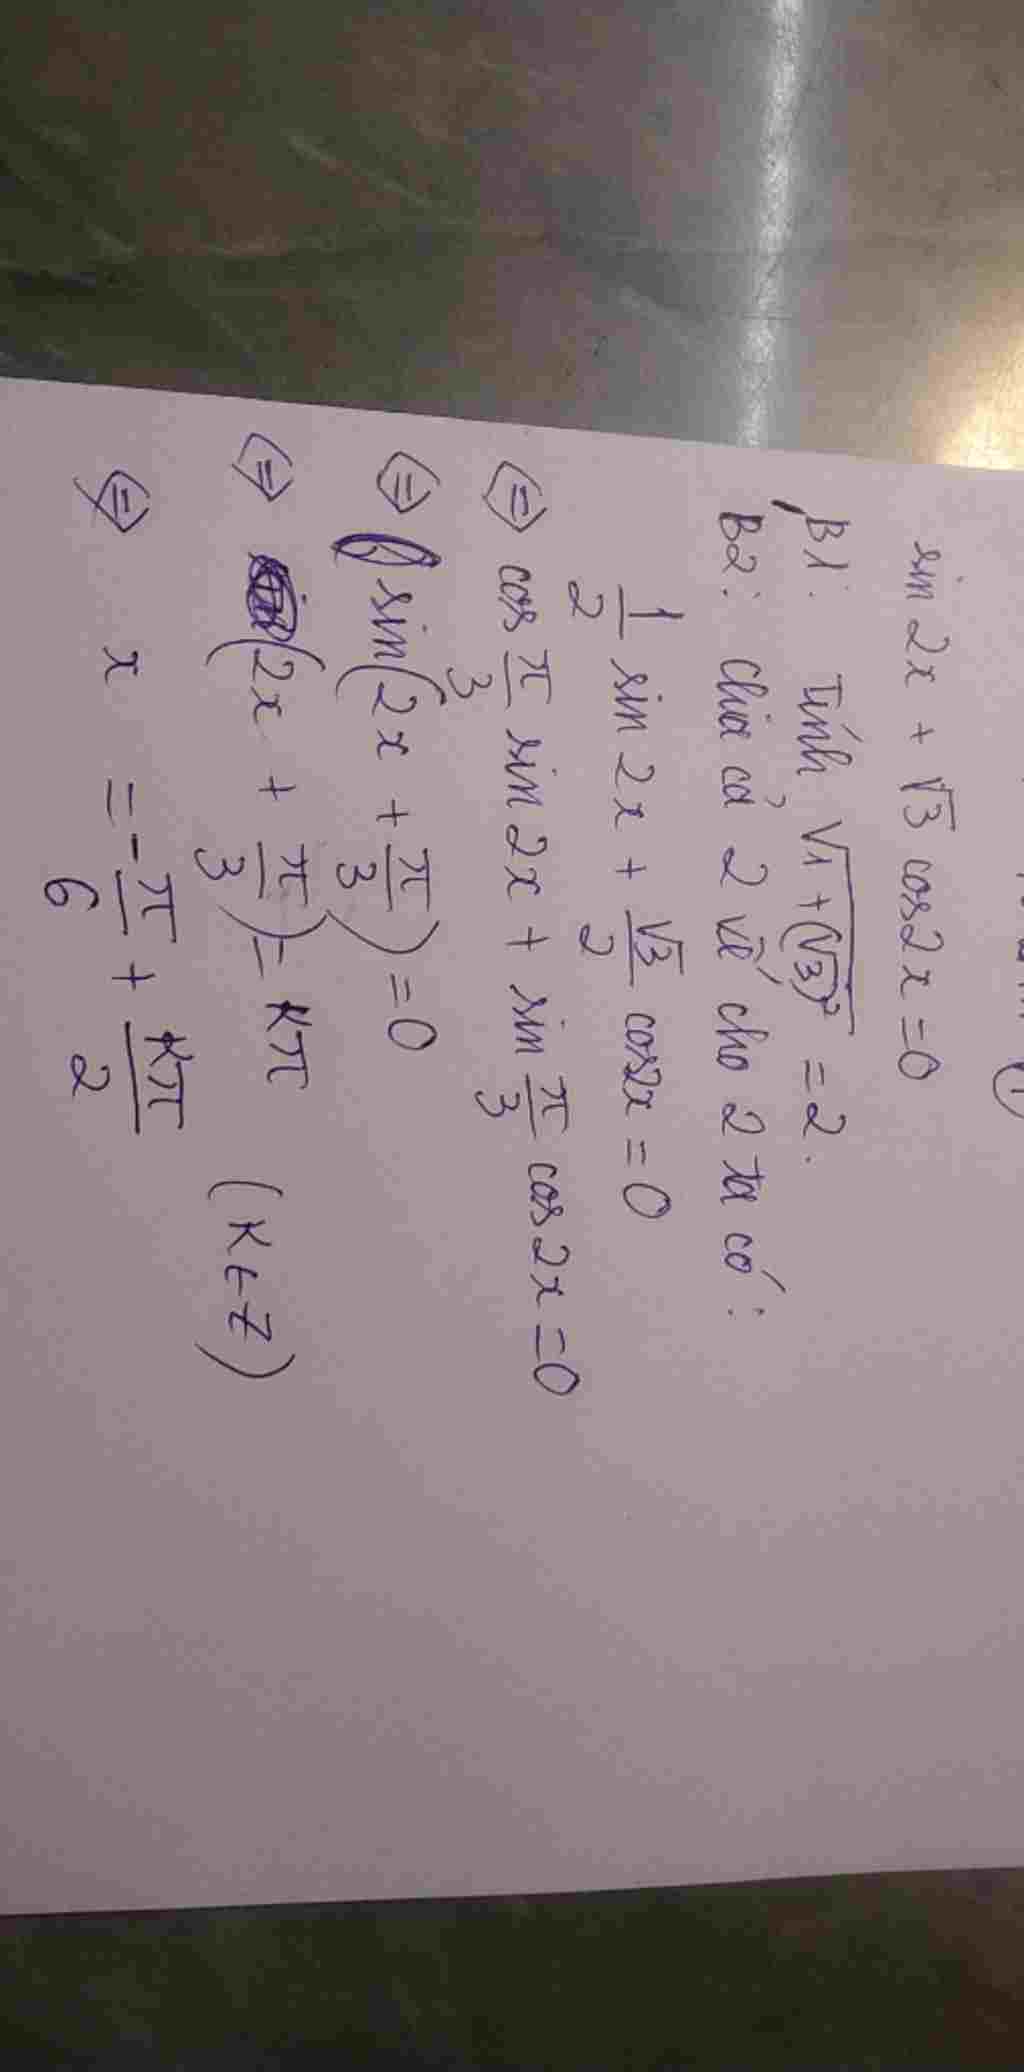 sin 2x + √3 cos2x = 0
B1: Tính √1+(√3)² = 2.
B2: chia cả 2 vế cho 2 ta có:
1/2 sin 2x + √3/2 cos2x = 0
⇔ cos π/3 sin 2x + sin π/3 cos 2x = 0
⇔ sin(2x + π/3) = 0
⇔ (2x + π/3) = kπ (k ∈ Z)
⇔ x = -π/6 + kπ/2